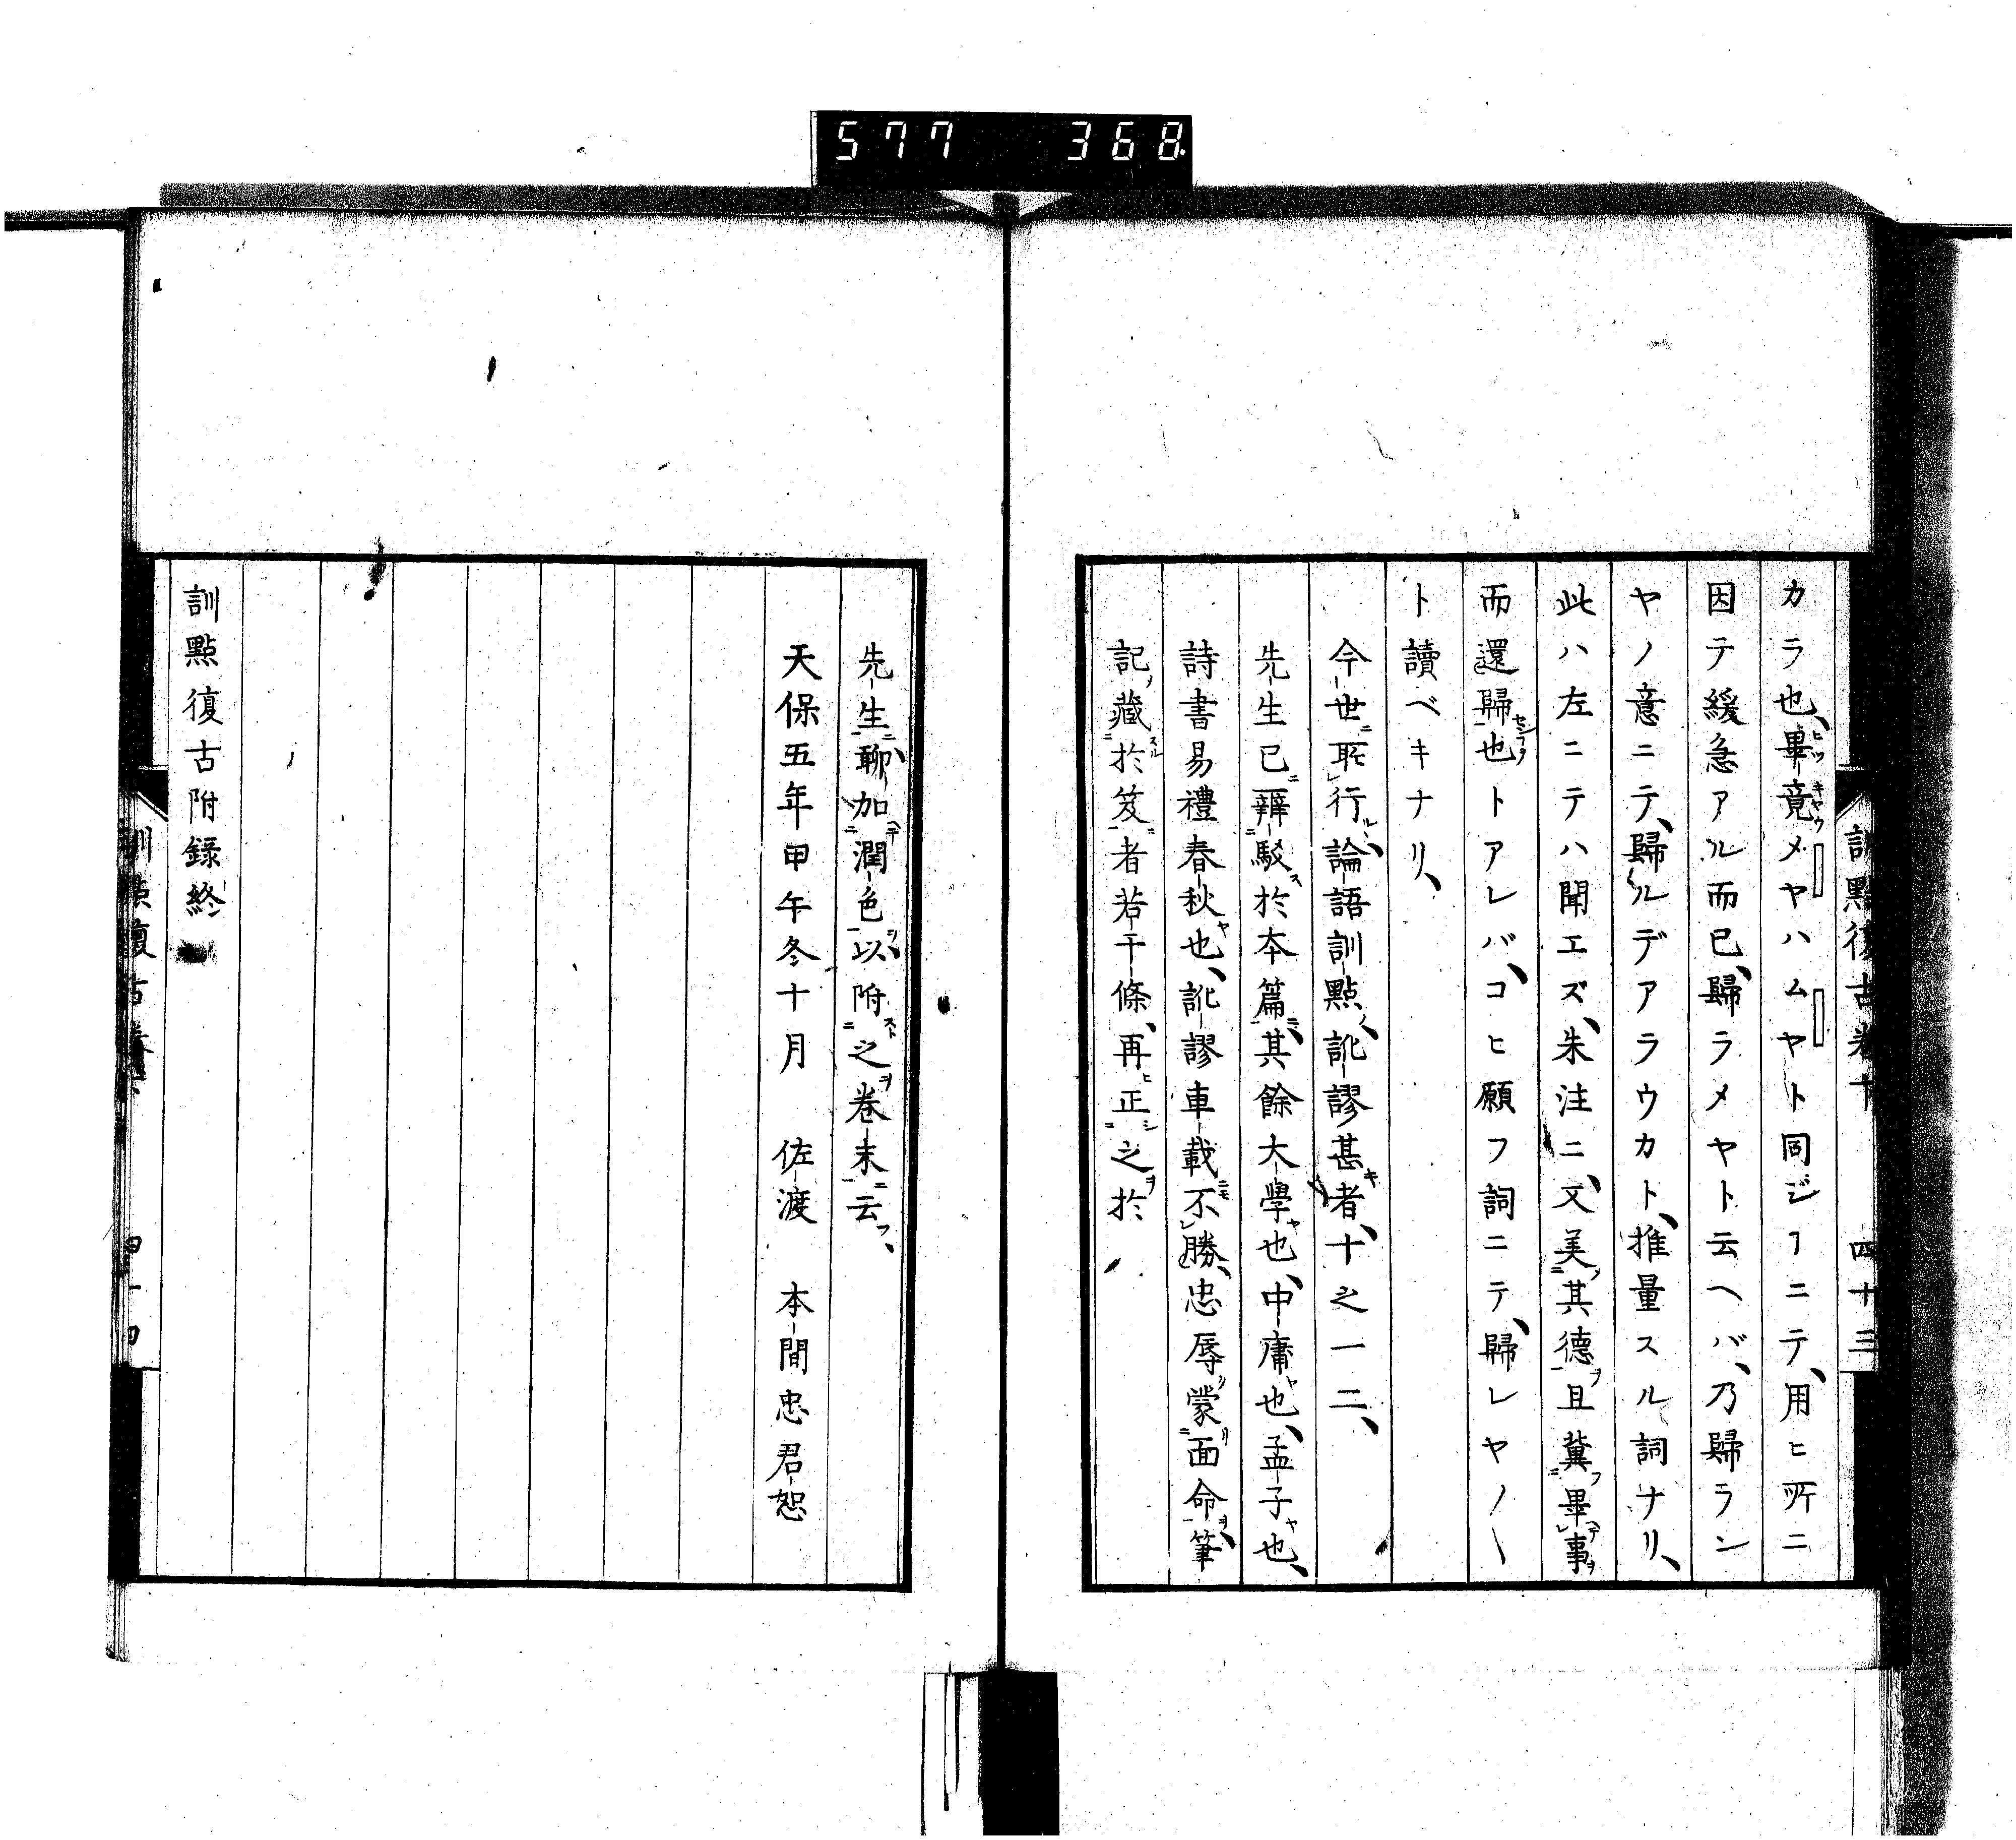 577 368
訓點復古卷下 四十三
カラ也、畢竟メヤハムヤト同ジフニテ、用ヒ所ニ
因テ緩急アル而已、歸ラメヤト云ヘバ、乃歸ラン
ヤノ意ニテ、歸ルデアラウカト、推量スル詞ナリ、
此ハ左ニテハ聞エズ、朱注ニ、又美其德且冀畢事
而還歸也トアレバ、コヒ願フ詞ニテ、歸レヤ〱
ト讀ベキナリ、
今世所行論語訓點、訛謬甚者、十之一二、
先生已辨駁於本篇、其餘大學也、中庸也、孟子也、
詩書易禮春秋也、訛謬車載不勝、忠辱蒙面命、筆
記藏於笈者若干條、再正之於
先生、聊加潤色、以附之卷末云、
天保五年甲午冬十月 佐渡 本間忠君恕
訓點復古附錄終